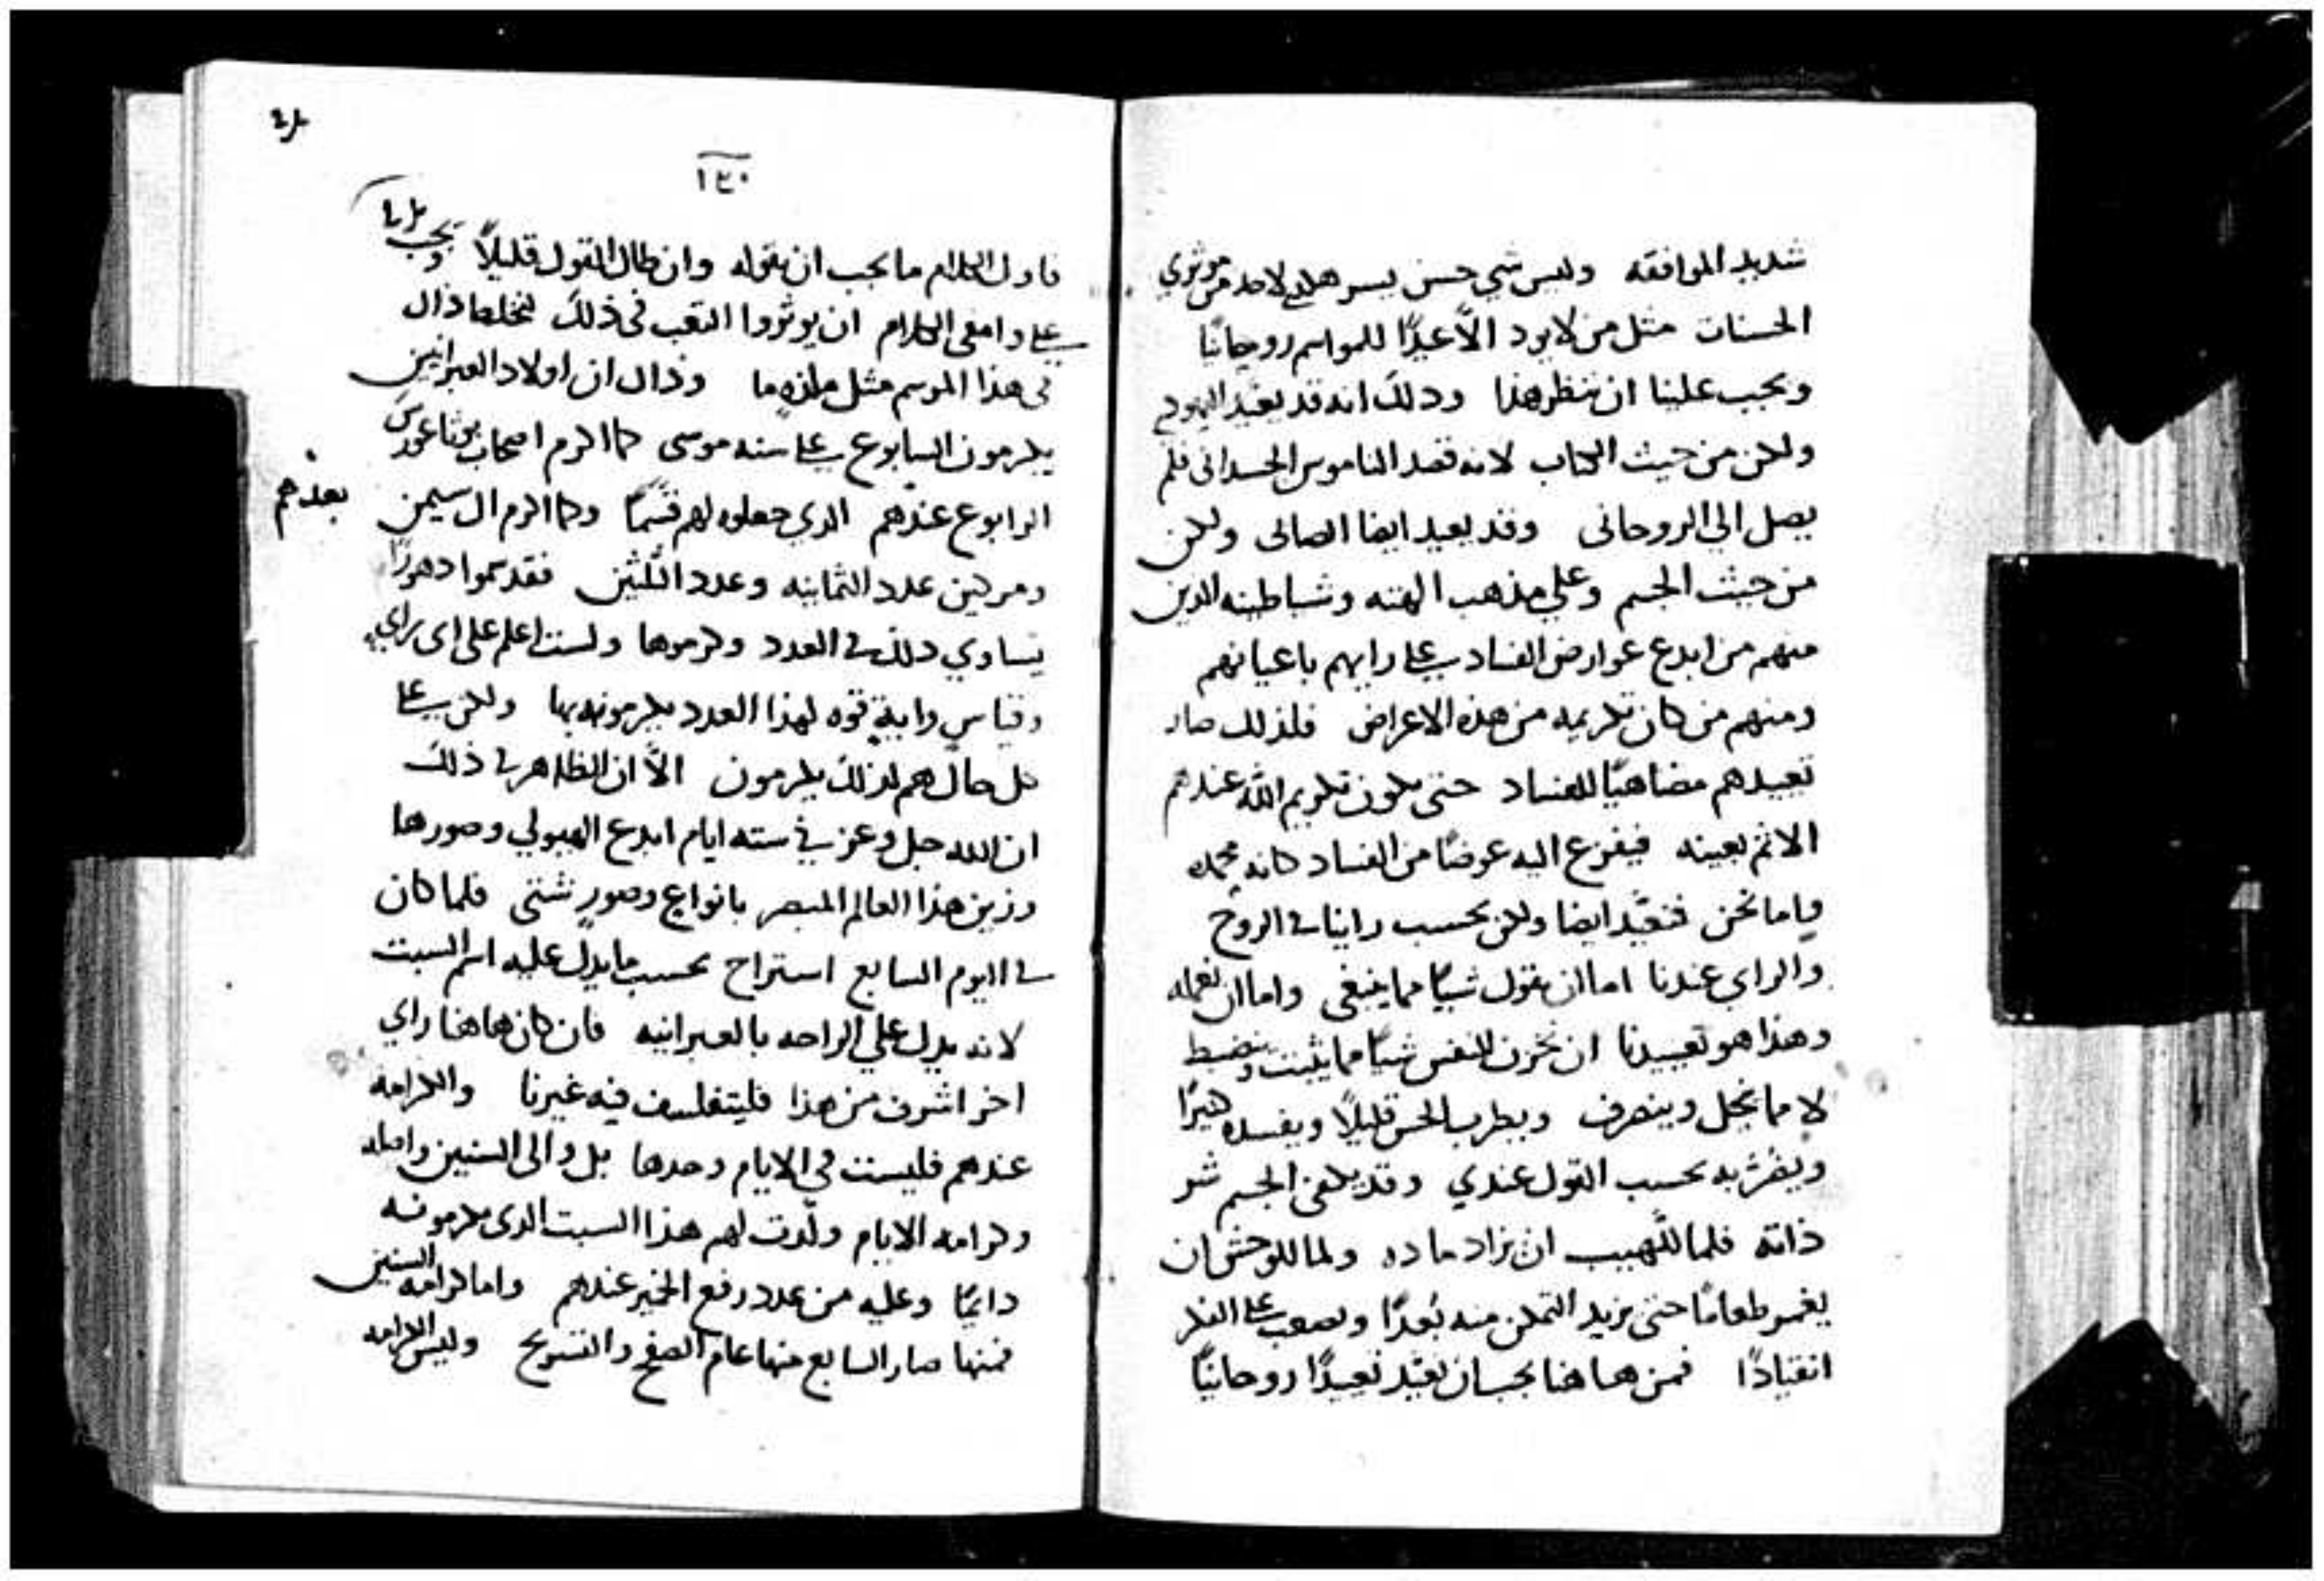 شديد الموافقه وليس شي حسن يسر هكذا لاحد من موثري
الحسنات مثل من لا يود الّا عيدًا للمواسم روحانيًا
ويجب علينا ان ننظر هذا وذلك انه قد يعيد اليهود
ولكن من حيث الكتاب لانه قصد الناموس الجسداني فلم
يصل الي الروحاني وقد يعيد ايضا الصابي ولكن
من حيث الجسم وعلي مذهب الهته وشياطينه الذين
منهم من ابدع عوارض الفساد على رايهم باعيانهم
ومنهم من كان تكريمه من هذه الاعراض فلذلك صار
تعييدهم مضاهيًا للفساد حتى يكون تكريم الله عندهم
الاثم بعينه فيفزع اليه عوضًا من الفساد كانه
واما نحن فنعيّد ايضا ولكن بحسب راينا في الروح
والراي عندنا اما ان نقول شيًا مما ينبغي واما ان نعمله
وهذا هو تعييدنا ان نخزن للنفس شيًا مما يثبت وينضبط
لا مما ينحل وينصرف ويطرب الحس قليلًا ويفسده كثيرًا
ويضرّ به بحسب القول عندي وقد يكفي الجسم شر
ذاته فلما للّهيب ان يزاد ماده ولما للوحش ان
يغمر طعامًا حتى يزيد التمكن منه بُعدًا ويصعب على الفكر
انقيادًا فمن هاهنا يجب ان نعيّد تعييدًا روحانيًا
١٤٠
فاول الكلام ما يجب ان نقوله وان طال القول قليلًا ويجب
على وامقي الكلام ان يوثروا التعب في ذلك
في هذا الموسم مثل ما وذاك ان اولاد العبرانيين
يكرمون السابوع على سنه موسى كما اكرم اصحاب بوثاغورس
الرابوع عندهم الذي جعلوه لهم قسمًا وكما اكرم ال سيمن بعدهم
ومركين عدد الثمانيه وعدد الثلثين فقد سموا دهورًا
يساوي ذلك في العدد وكرموها ولست اعلم على اي راي
وقياس واية قوه لهذا العدد يكرمونه بها ولكن على
كل حال هم لذلك يكرمون الّا ان الظاهر في ذلك
ان الله جل وعز في سته ايام ابدع الهيولي وصورها
وزين هذا العالم المبصر بانواع وصور شتى فلما كان
في اليوم السابع استراح بحسب ما يدل عليه اسم السبت
لانه يدل علي الراحه بالعبرانيه فان كان هاهنا راي
اخر اشرف من هذا فليتفلسف فيه غيرنا والكرامه
عندهم فليست في الايام وحدها بل والى السنين واصله
وكرامه الايام ولّدت لهم هذا السبت الذى يكرمونه
دايمًا وعليه من عدد رفع الخمير عندهم واما كرامه السنين
فمنها صار السابع منها عام الصفح والتسريح وليس الكرامه